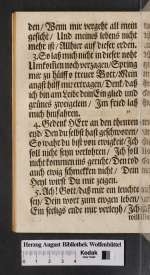 den / Wenn mir vergeht all mein
gesicht / Und meines lebens nicht
mehr ist / Allhier auf dieser erden.
3. So laß mich nicht in dieser noht
Umkom̃en noch verzagen / Spring
mir zu hülff o treuer Gott / Mein
angst hilff mir ertragen / Denck / daß
ich bin am Leibe dein Ein glied und
grünes zweigelein / Im fried laß
mich hinfahren.
4. Gedenck HErr an den theuren
eyd / Den du selbst hast geschworen /
So wahr du bist von ewigkeit / Ich
soll nicht seyn verlohren / Ich soll
nicht kommen ins gericht / Den tod
auch ewig schmecken nicht / Dein
Heyl wollst Du mir zeigen.
5. Ach! Gott / laß mir ein leuchte
seyn / Dein wort zum ewgen leben /
Ein seligs ende mir verleyh / Ich
Herzog August Bibliothek Wolfenbüttel